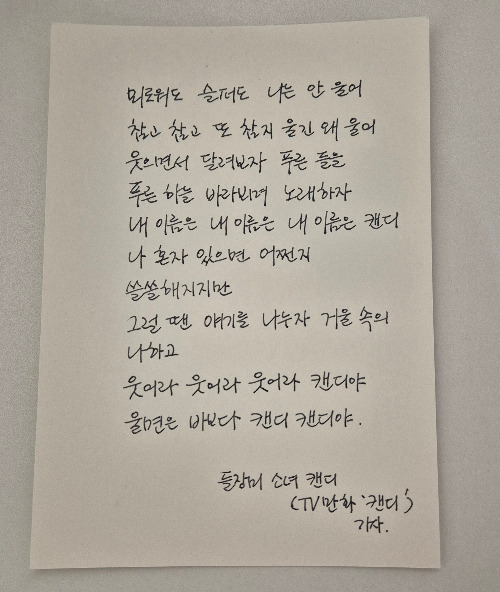 외로워도 슬퍼도 나는 안 울어
참고 참고 또 참지 울긴 왜 울어
웃으면서 달려보자 푸른 들을
푸른 하늘 바라보며 노래하자
내 이름은 내 이름은 내 이름은 캔디
나 혼자 있으면 어쩐지
쓸쓸해지지만
그럴 땐 얘기를 나누자 거울 속의
나하고
웃어라 웃어라 웃어라 캔디야
울면은 바보다 캔디 캔디야.
들장미 소녀 캔디
(TV만화 '캔디')